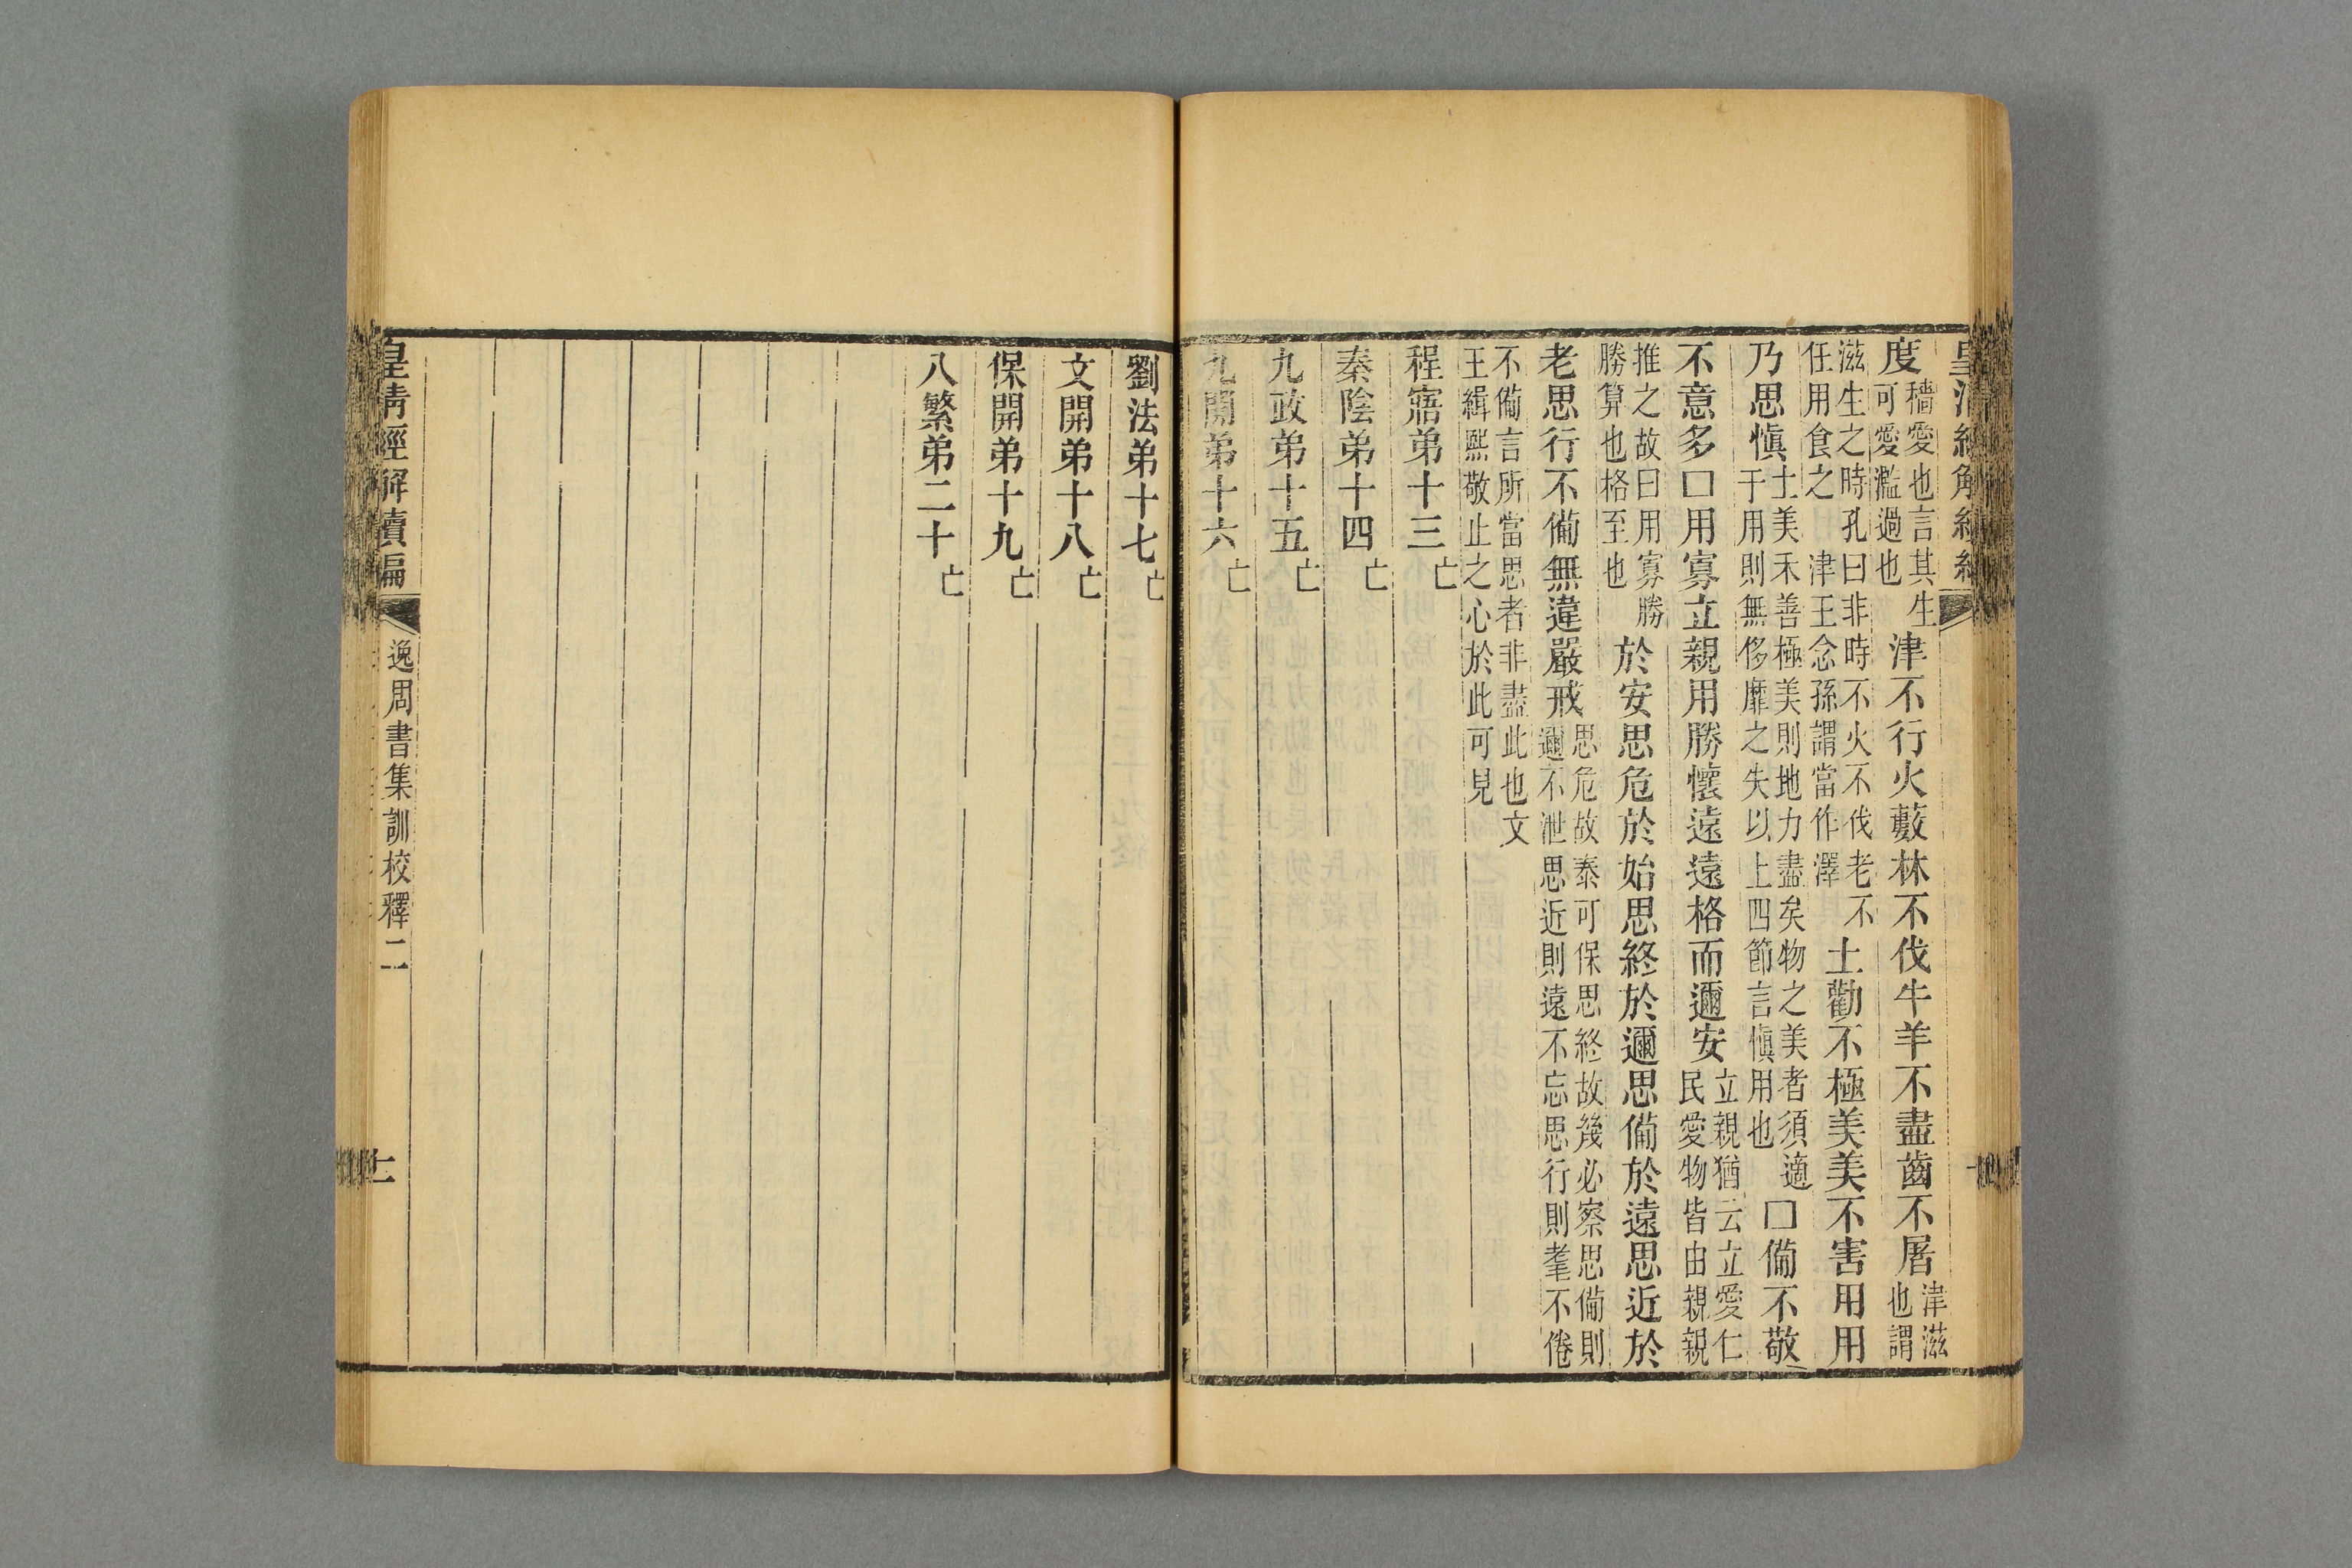 皇清經解續編
度穡愛也言其生可愛濫過也津不行火藪林不伐牛羊不盡齒不屠津滋也謂
滋生之時孔曰非時不火不伐老不任用食之　津王念孫謂當作澤土勸不極美美不害用用
乃思慎土美禾善極美則地力盡矣物之美者須適于用則無侈靡之失以上四節言慎用也囗備不敬
不意多囗用寡立親用勝懷遠遠格而邇安立親猶云立愛仁民愛物皆由親親
推之故曰用寡勝勝算也格至也於安思危於始思終於邇思備於遠思近於
老思行不備無違嚴戒思危故泰可保思終故幾必察思備則邇不泄思近則遠不忘思行則耄不倦
不備言所當思者非盡此也文王緝熙敬止之心於此可見
程寤弟十三亡
秦陰弟十四亡
九政弟十五亡
九開弟十六亡
劉法弟十七亡
文開弟十八亡
保開弟十九亡
八繁弟二十亡
皇清經解續編　逸周書集訓校釋二